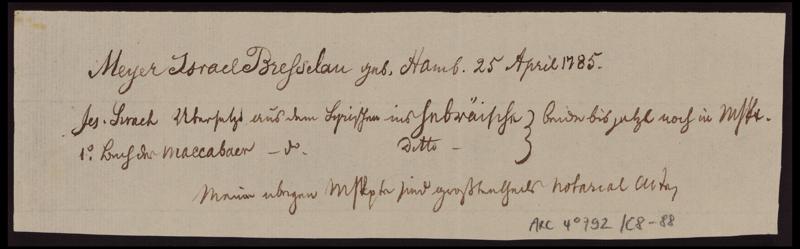 Meyer Israel Bresselau geb. Hamb. 25 April 1785.
Jes. Sirach übersetzt aus dem Syrischen ins Hebräische } beide bis jetzt noch in Mskr.
1º Buch der Maccabäer — do. Ditto —
Meine übrigen Mskpte sind großtentheils notarial Akte,
ARC 4º 792 /C8-88